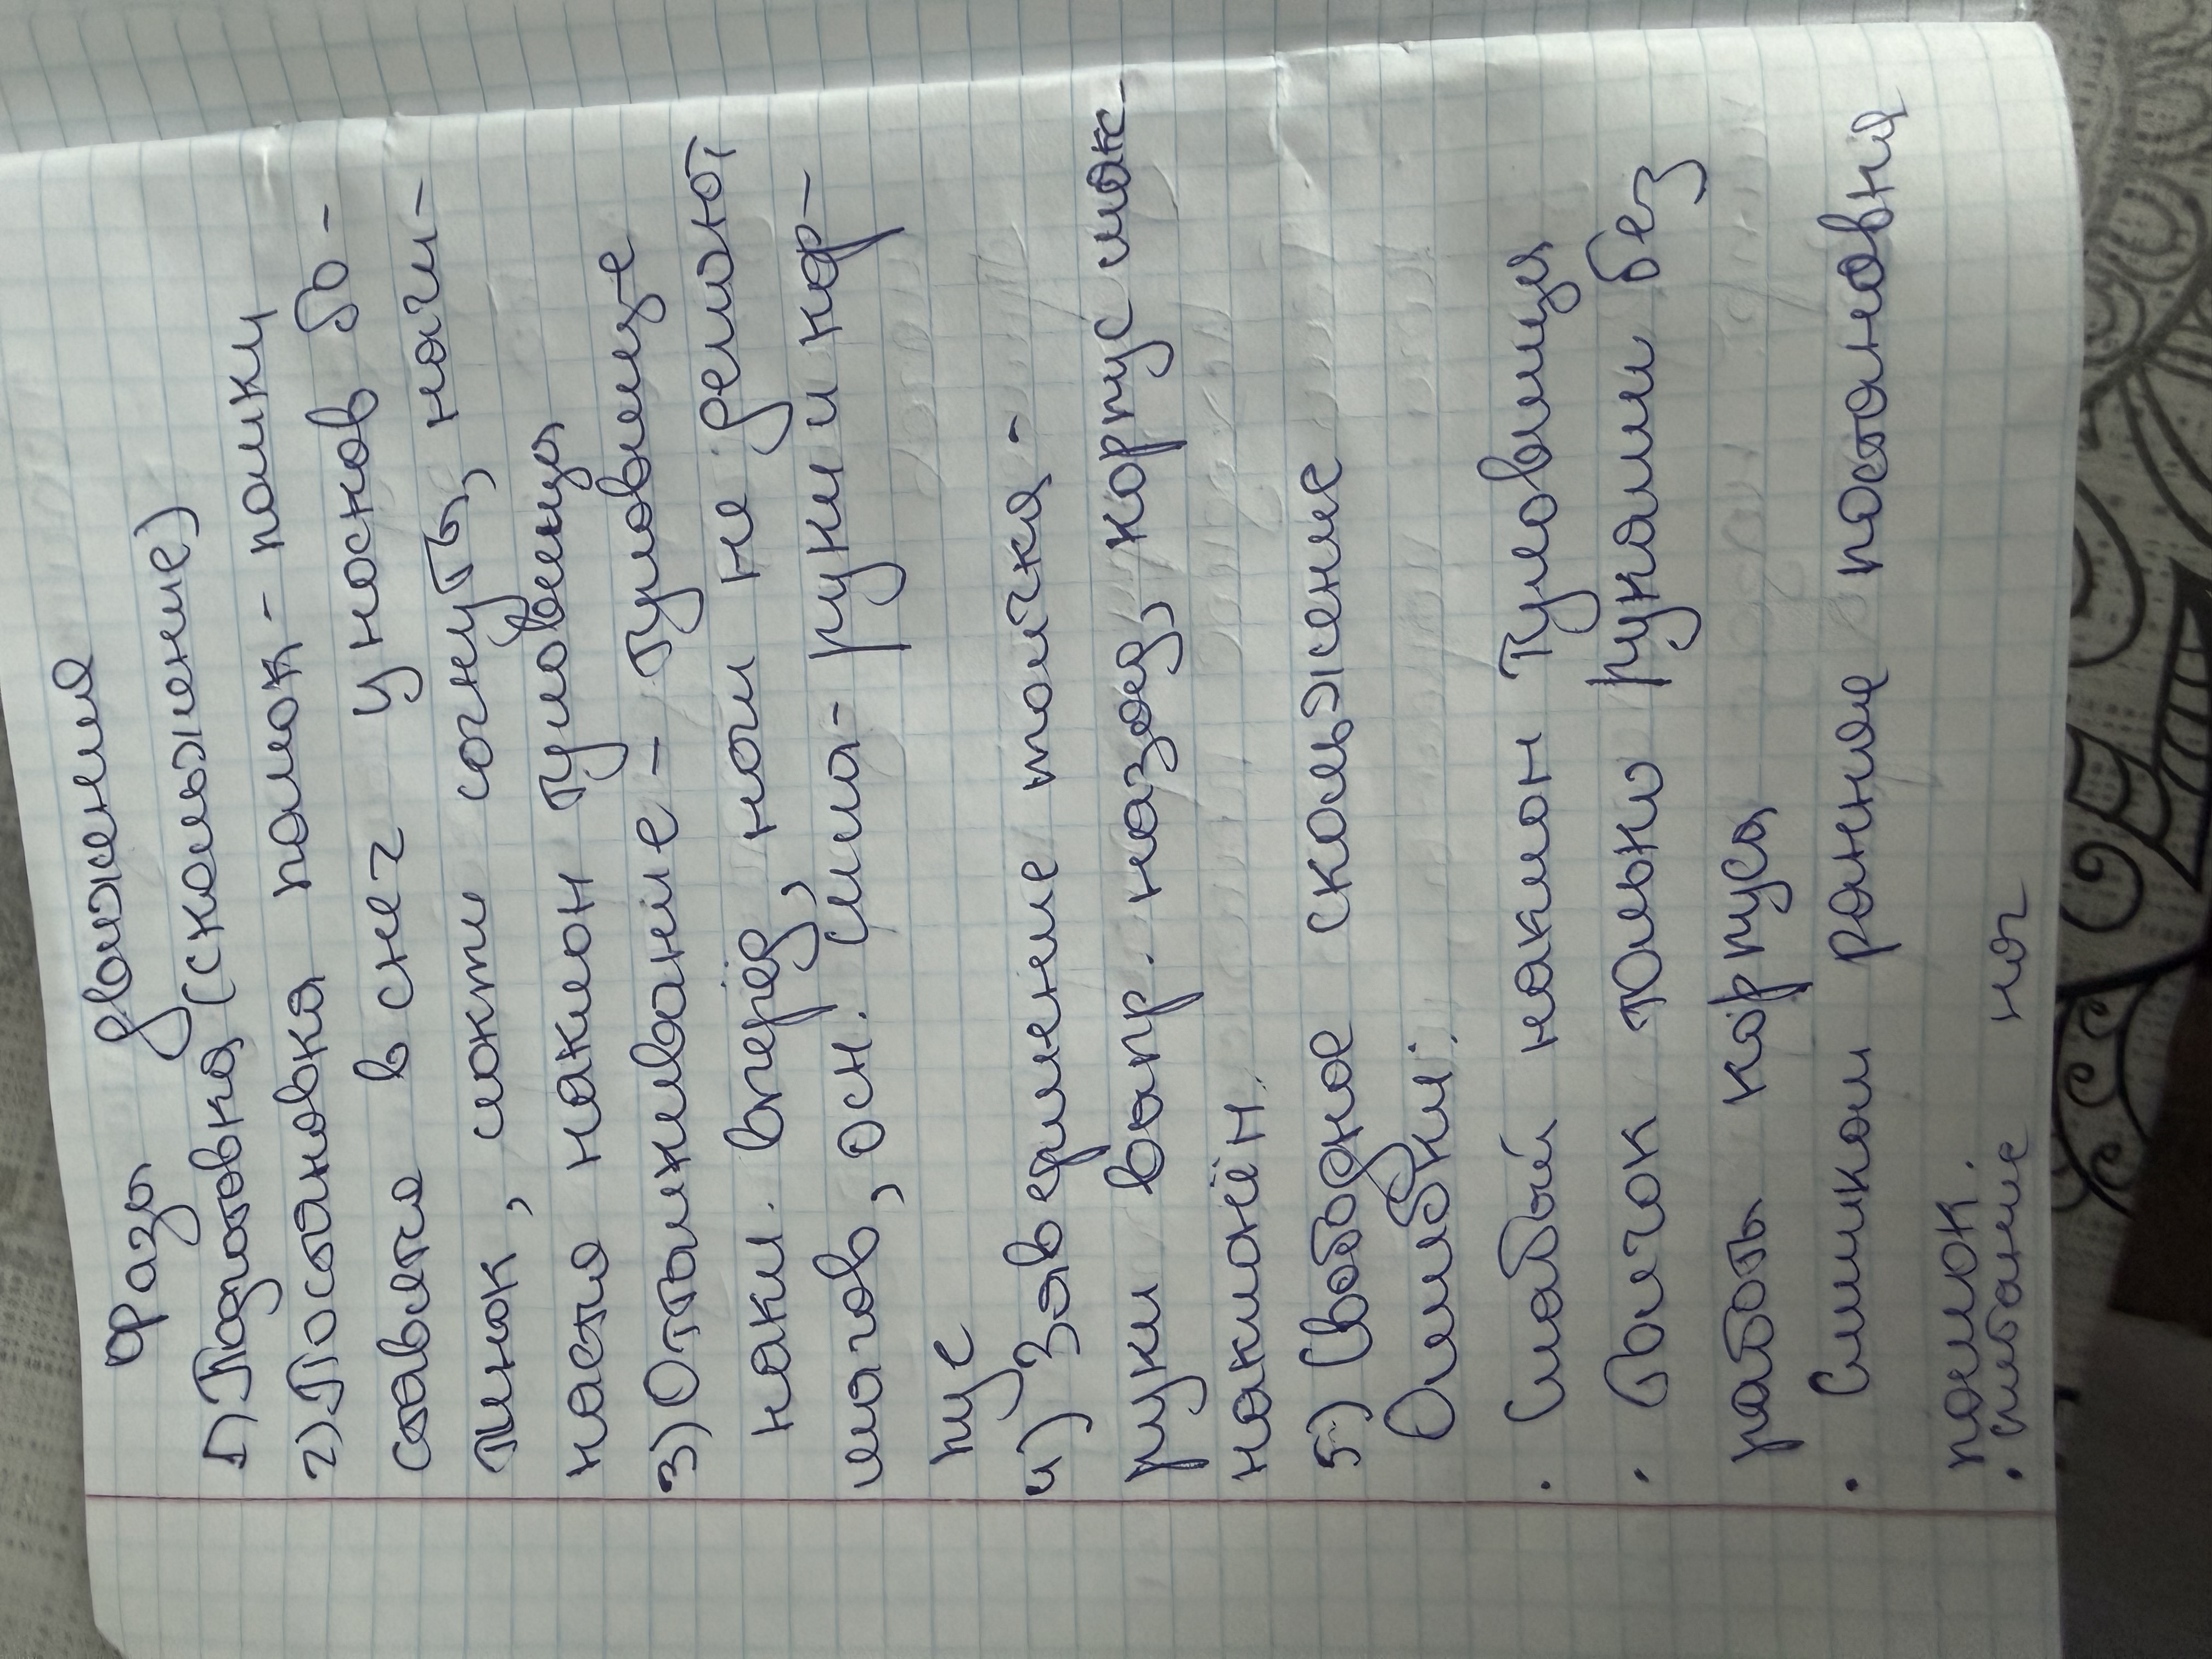 Фазы движения
1) Подготовка (скольжение)
2) Постановка палок - палки
ставятся в снег у носков бо-
тинок, локти согнуты, начи-
нается наклон туловища
3) Отталкивание - туловище
накл. вперёд, ноги не делают
шагов, осн. сила - руки и кор-
пус
4) Завершение толчка -
руки выпр. назад, корпус макс.
наклонён.
5) Свободное скольжение
Ошибки:
· Слабый наклон туловища
· Толчок только руками без
работы корпуса
· Слишком ранное постановка
палок.
· сгибание ног